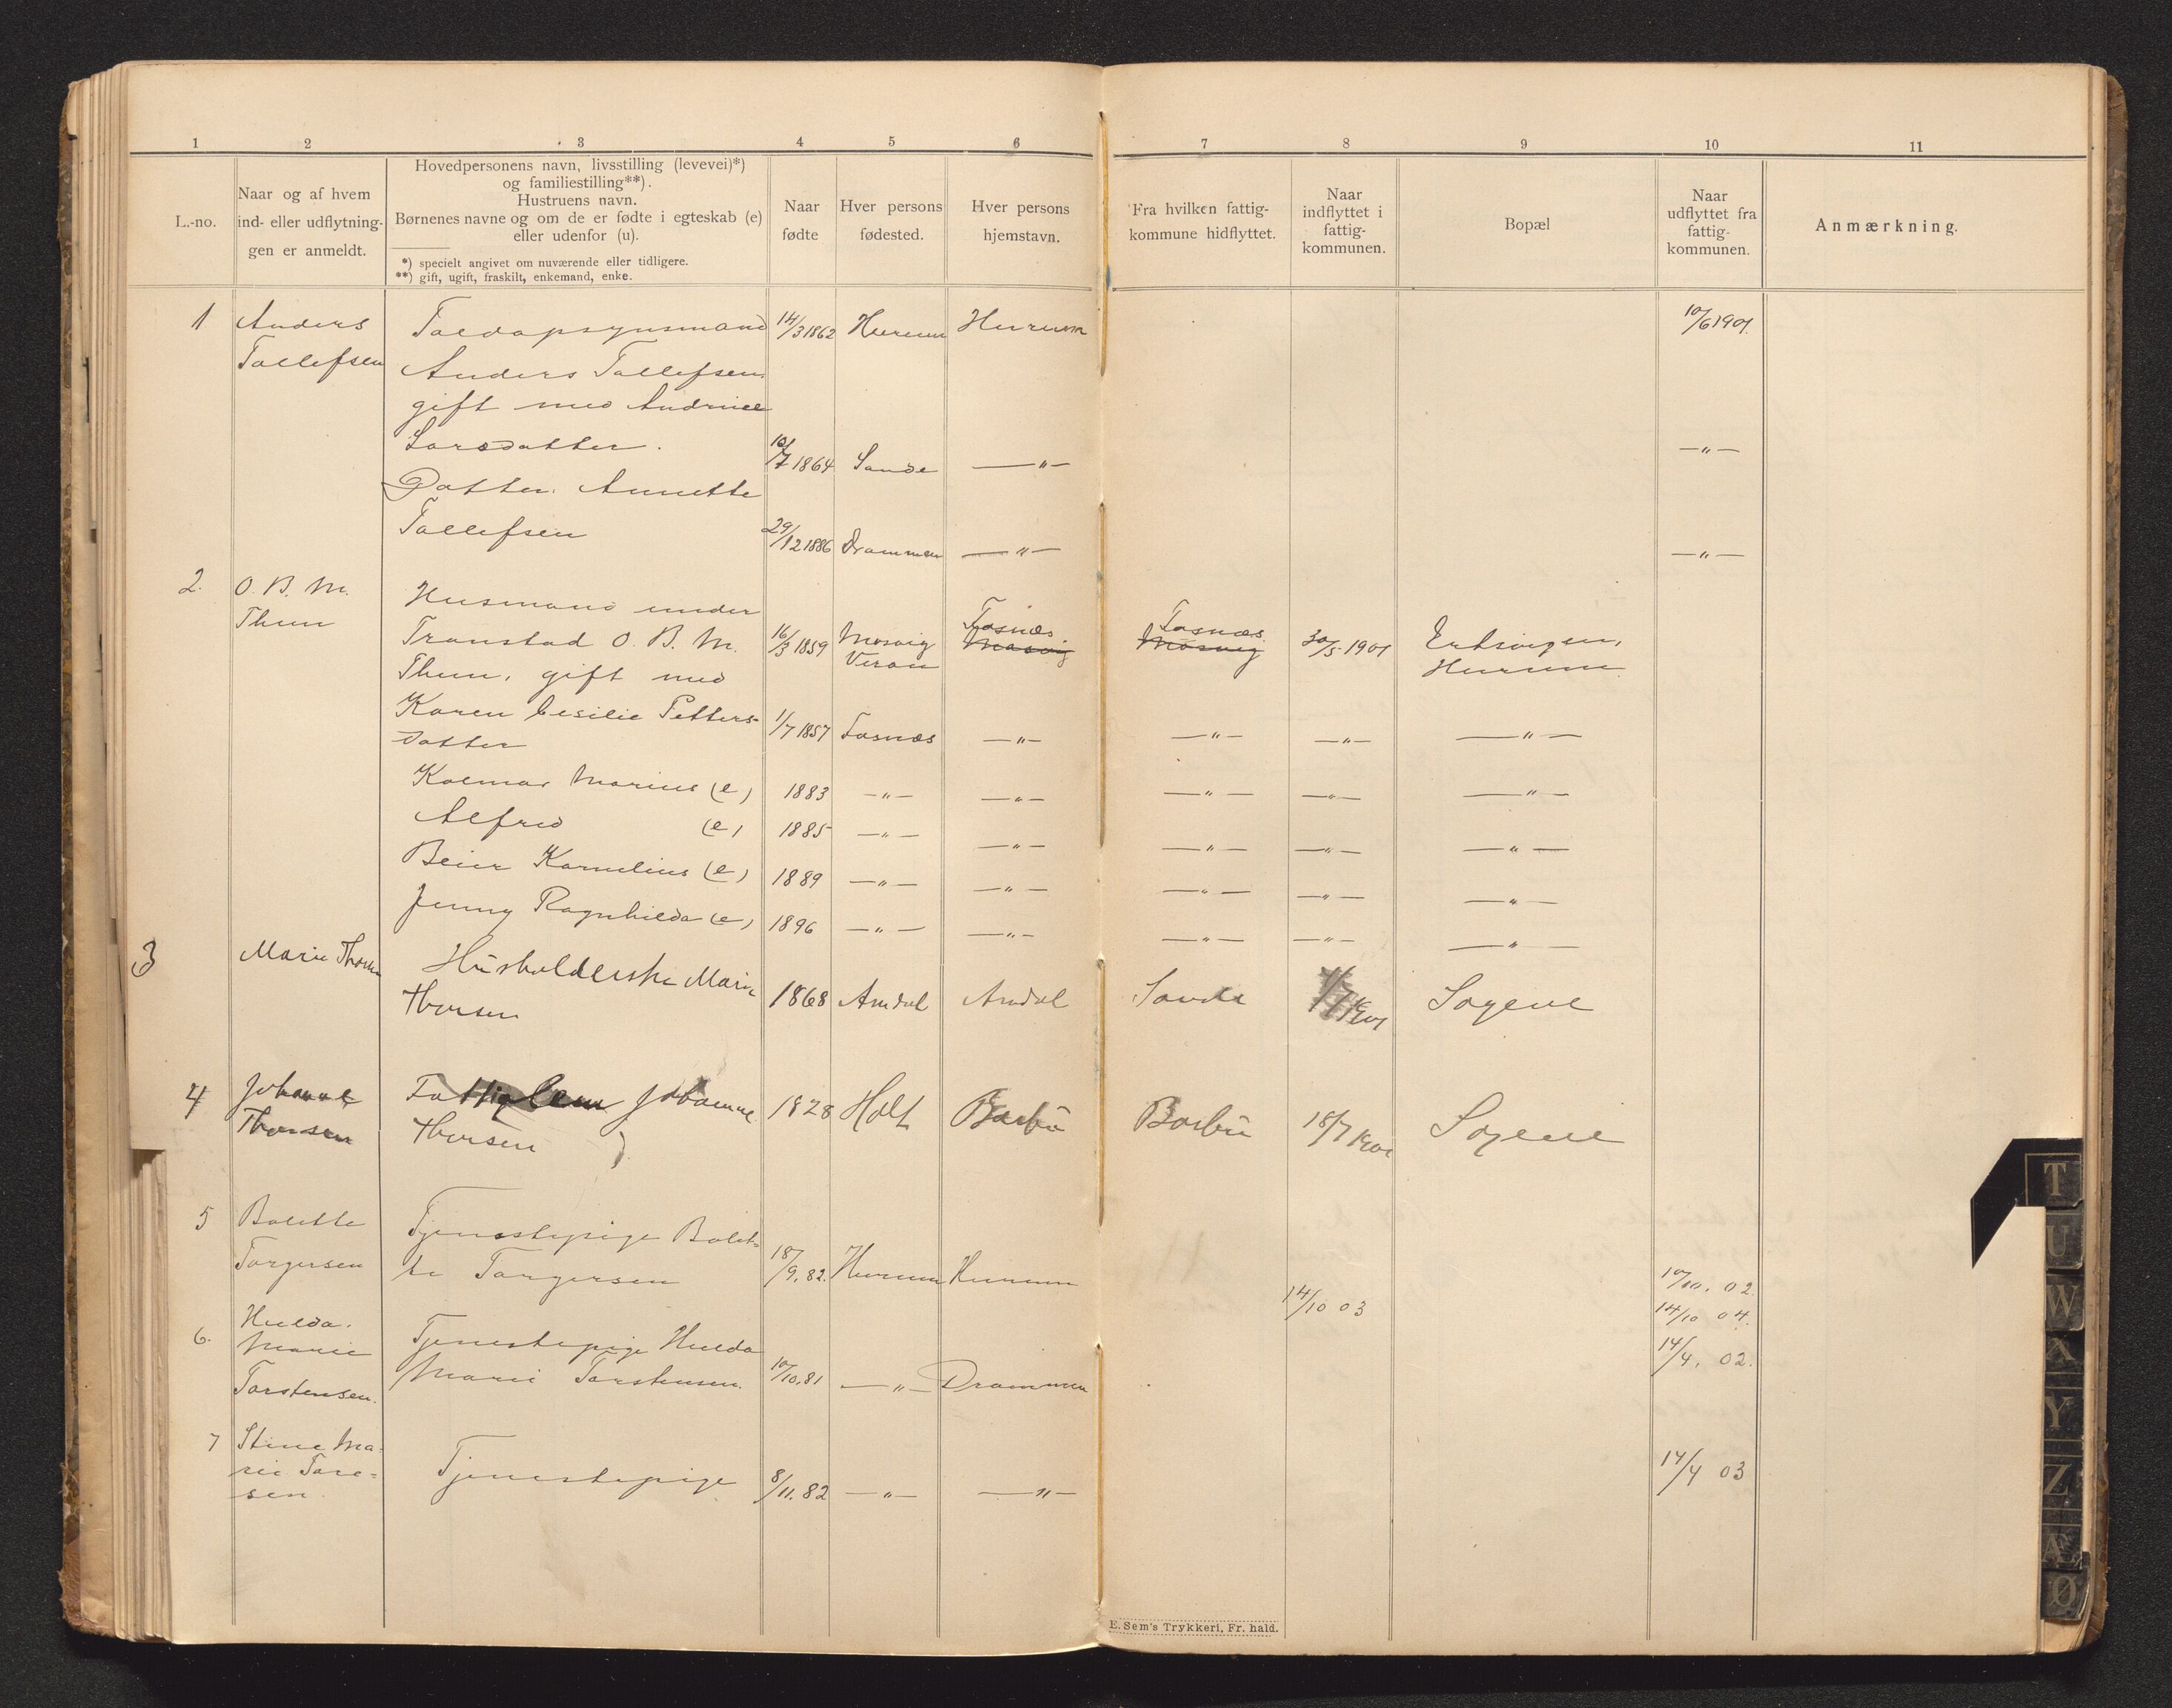 1 2 3 4 5 6 7 8 9 10 11
L.-no.
Naar og af hvem
ind- eller udflytnin-
gen er anmeldt.
Hovedpersonens navn, livsstilling (levevei)*)
og familiestilling**).
Hustruens navn.
Børnenes navne og om de er fødte i egteskab (e)
eller udenfor (u).
*) specielt angivet om nuværende eller tidligere.
**) gift, ugift, fraskilt, enkemand, enke.
Naar
fødte
Hver persons
fødested.
Hver persons
hjemstavn.
Fra hvilken fattig-
kommune hidflyttet.
Naar
indflyttet i
fattig-
kommunen.
Bopæl
Naar
udflyttet fra
fattig-
kommunen.
Anmærkning.
1 Anders Toldopsynsmand 14/3 1862 Hurum Hurum 10/6 1901.
Tollefsen Anders Tollefsen.
gift med Andrine
Larsdatter. 10/7 1864 Sande —"— —"—
Datter. Annette
Tollefsen 29/12 1886 Drammen —"— —"—
2. O. B. M. Husmand under
Thun Transtad O. B. M. 16/3 1859 Mosvig Fosnæs Fosnæs 30/5 1901 Ertsvigsen,
Thun, gift med Veran Mosvig Mosvig Hurum
Karen Cesilie Petters- 1/7 1857 Fosnæs —"— —"— —"— —"—
datter
Kolmar Marius (e) 1883 —"— —"— —"— —"— —"—
Alfred (e) 1885 —"— —"— —"— —"— —"—
Beier Kornelius (e) 1889 —"— —"— —"— —"— —"—
Jenny Ragnhilda (e) 1896 —"— —"— —"— —"— —"—
3 Marie Thorsen Husholderske Marie
Thorsen 1868 Arndal Arndal Sande 1/7 1901 Sagene
4 Johanne Fattiglem Johanne 1828 Holt Barbu Barbu 18/7 1901 Sagene
Thorsen Thorsen
5 Bolette Tjenestepige Bolet-
Torgersen te Torgersen 18/9. 82. Hurum Hurum 10/10. 02.
14/10 03 14/10 04.
6. Hulda. Tjenestepige Hulda 14/4. 02.
Marie Marie Torstensen. 10/10. 81 —"— Drammen
Torstensen.
7 Stine Ma- Tjenestepige 8/11. 82 —"— —"— 14/4 03
rie Tore=
sen
E. Sem's Trykkeri, Fr. hald.
T
U
W
X
Y
Z
Æ
Ø